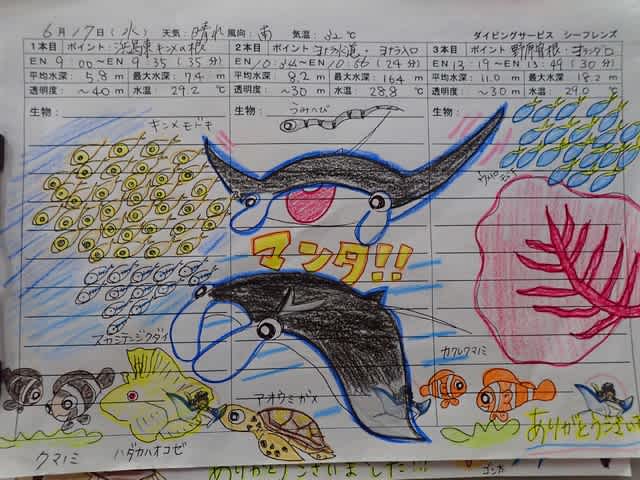 6月17日(水) 天気:晴れ 風向:南 気温:32℃ ダイビングサービス シーフレンズ
1本目 ポイント:浜島東キンメの根 2本目 ポイント:ヨナラ水道・ヨナラ入口 3本目 ポイント:
EN 9:00〜EN 9:35(35分) EN 10:34〜EN 10:58(24分) EN 13:19〜EN 13:49(30分)
平均水深: 5.8 m 最大水深: 7.4 m 平均水深: 8.2 m 最大水深: 16.4 m 平均水深: 11.0 m 最大水深: 18.2 m
透明度: 〜40 m 水温: 29.2 ℃ 透明度: 〜30 m 水温: 28.8 ℃ 透明度: 〜30 m 水温: 29.0 ℃
生物: 生物: 生物:
うみへび
キンメモドキ
マンタ!!
スカシテンジクダイ
カクレクマノミ
アオウミガメ
クマノミ
ハダカハオコゼ
ありがとうござい
ありがとうございました!!!